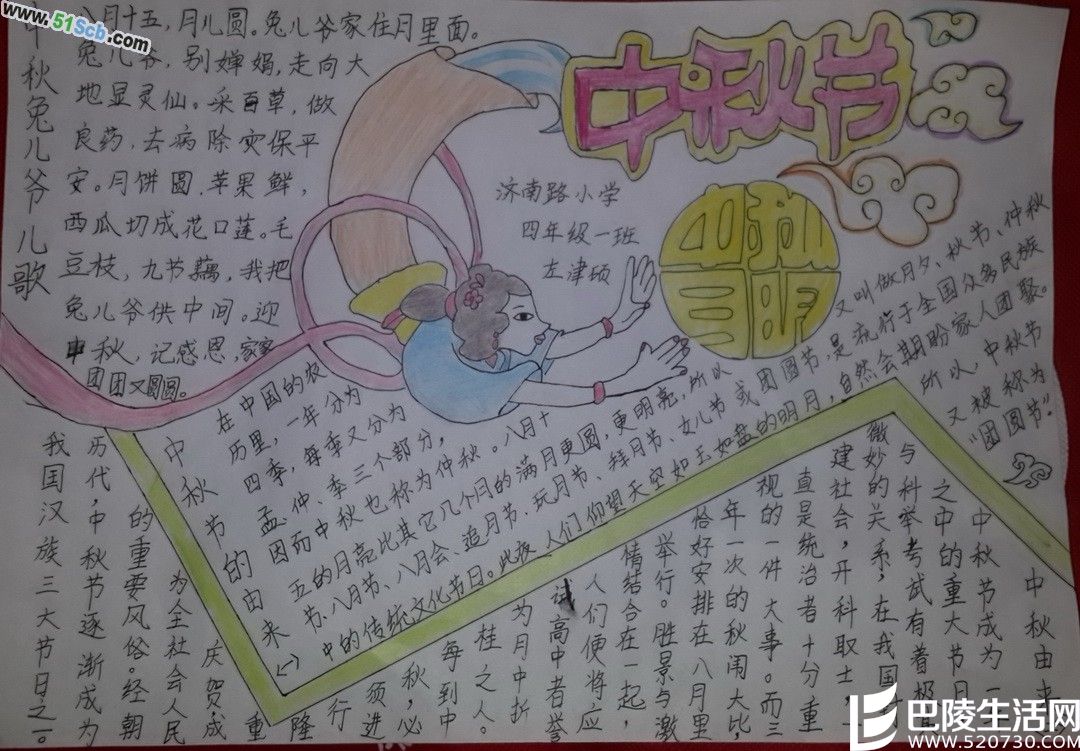 www.51Scb.com
中秋节
中秋兔儿爷儿歌
八月十五,月儿圆。兔儿爷家住月里面。
兔儿爷,别婵娟,走向大
地显灵仙。采百草,做
良药,去病除灾保平
安。月饼圆,苹果鲜,
西瓜切成花口莲。毛
豆枝,九节藕,我把
兔儿爷供中间。迎
中秋,记感恩,家家
团团又圆圆。
济南路小学
四年级一班
左津硕
中秋节的由来(一)
在中国的农
历里,一年分为
四季,每季又分为
孟、仲、季三个部分,
因而中秋也称为仲秋。八月十
五的月亮比其它几个月的满月更圆,更明亮,所以
又叫做月夕、秋节、仲秋
节、八月节、八月会、追月节、玩月节、拜月节、女儿节或团圆节,是流行于全国众多民族
中的传统文化节日。此夜,人们仰望天空如玉如盘的明月,自然会期盼家人团聚。
所以,中秋节
又被称为
“团圆节”。
中秋由来
中秋节成为
之中的重大节
与科举考试有着极
微妙的关系,在我国
建社会,开科取士,一
直是统治者十分重
视的一件大事。而三
年一次的秋闱大比,
恰好安排在八月里
举行。胜景与激
情结合在一起,
人们便将应
试高中者誉
为月中折
桂之人。
每到中
秋,必
须进
行
隆
重
庆贺成
为全社会人民
的重要风俗。经朝
历代,中秋节逐渐成为
我国汉族三大节日之一。
巴陵生活网
www.520730.COM